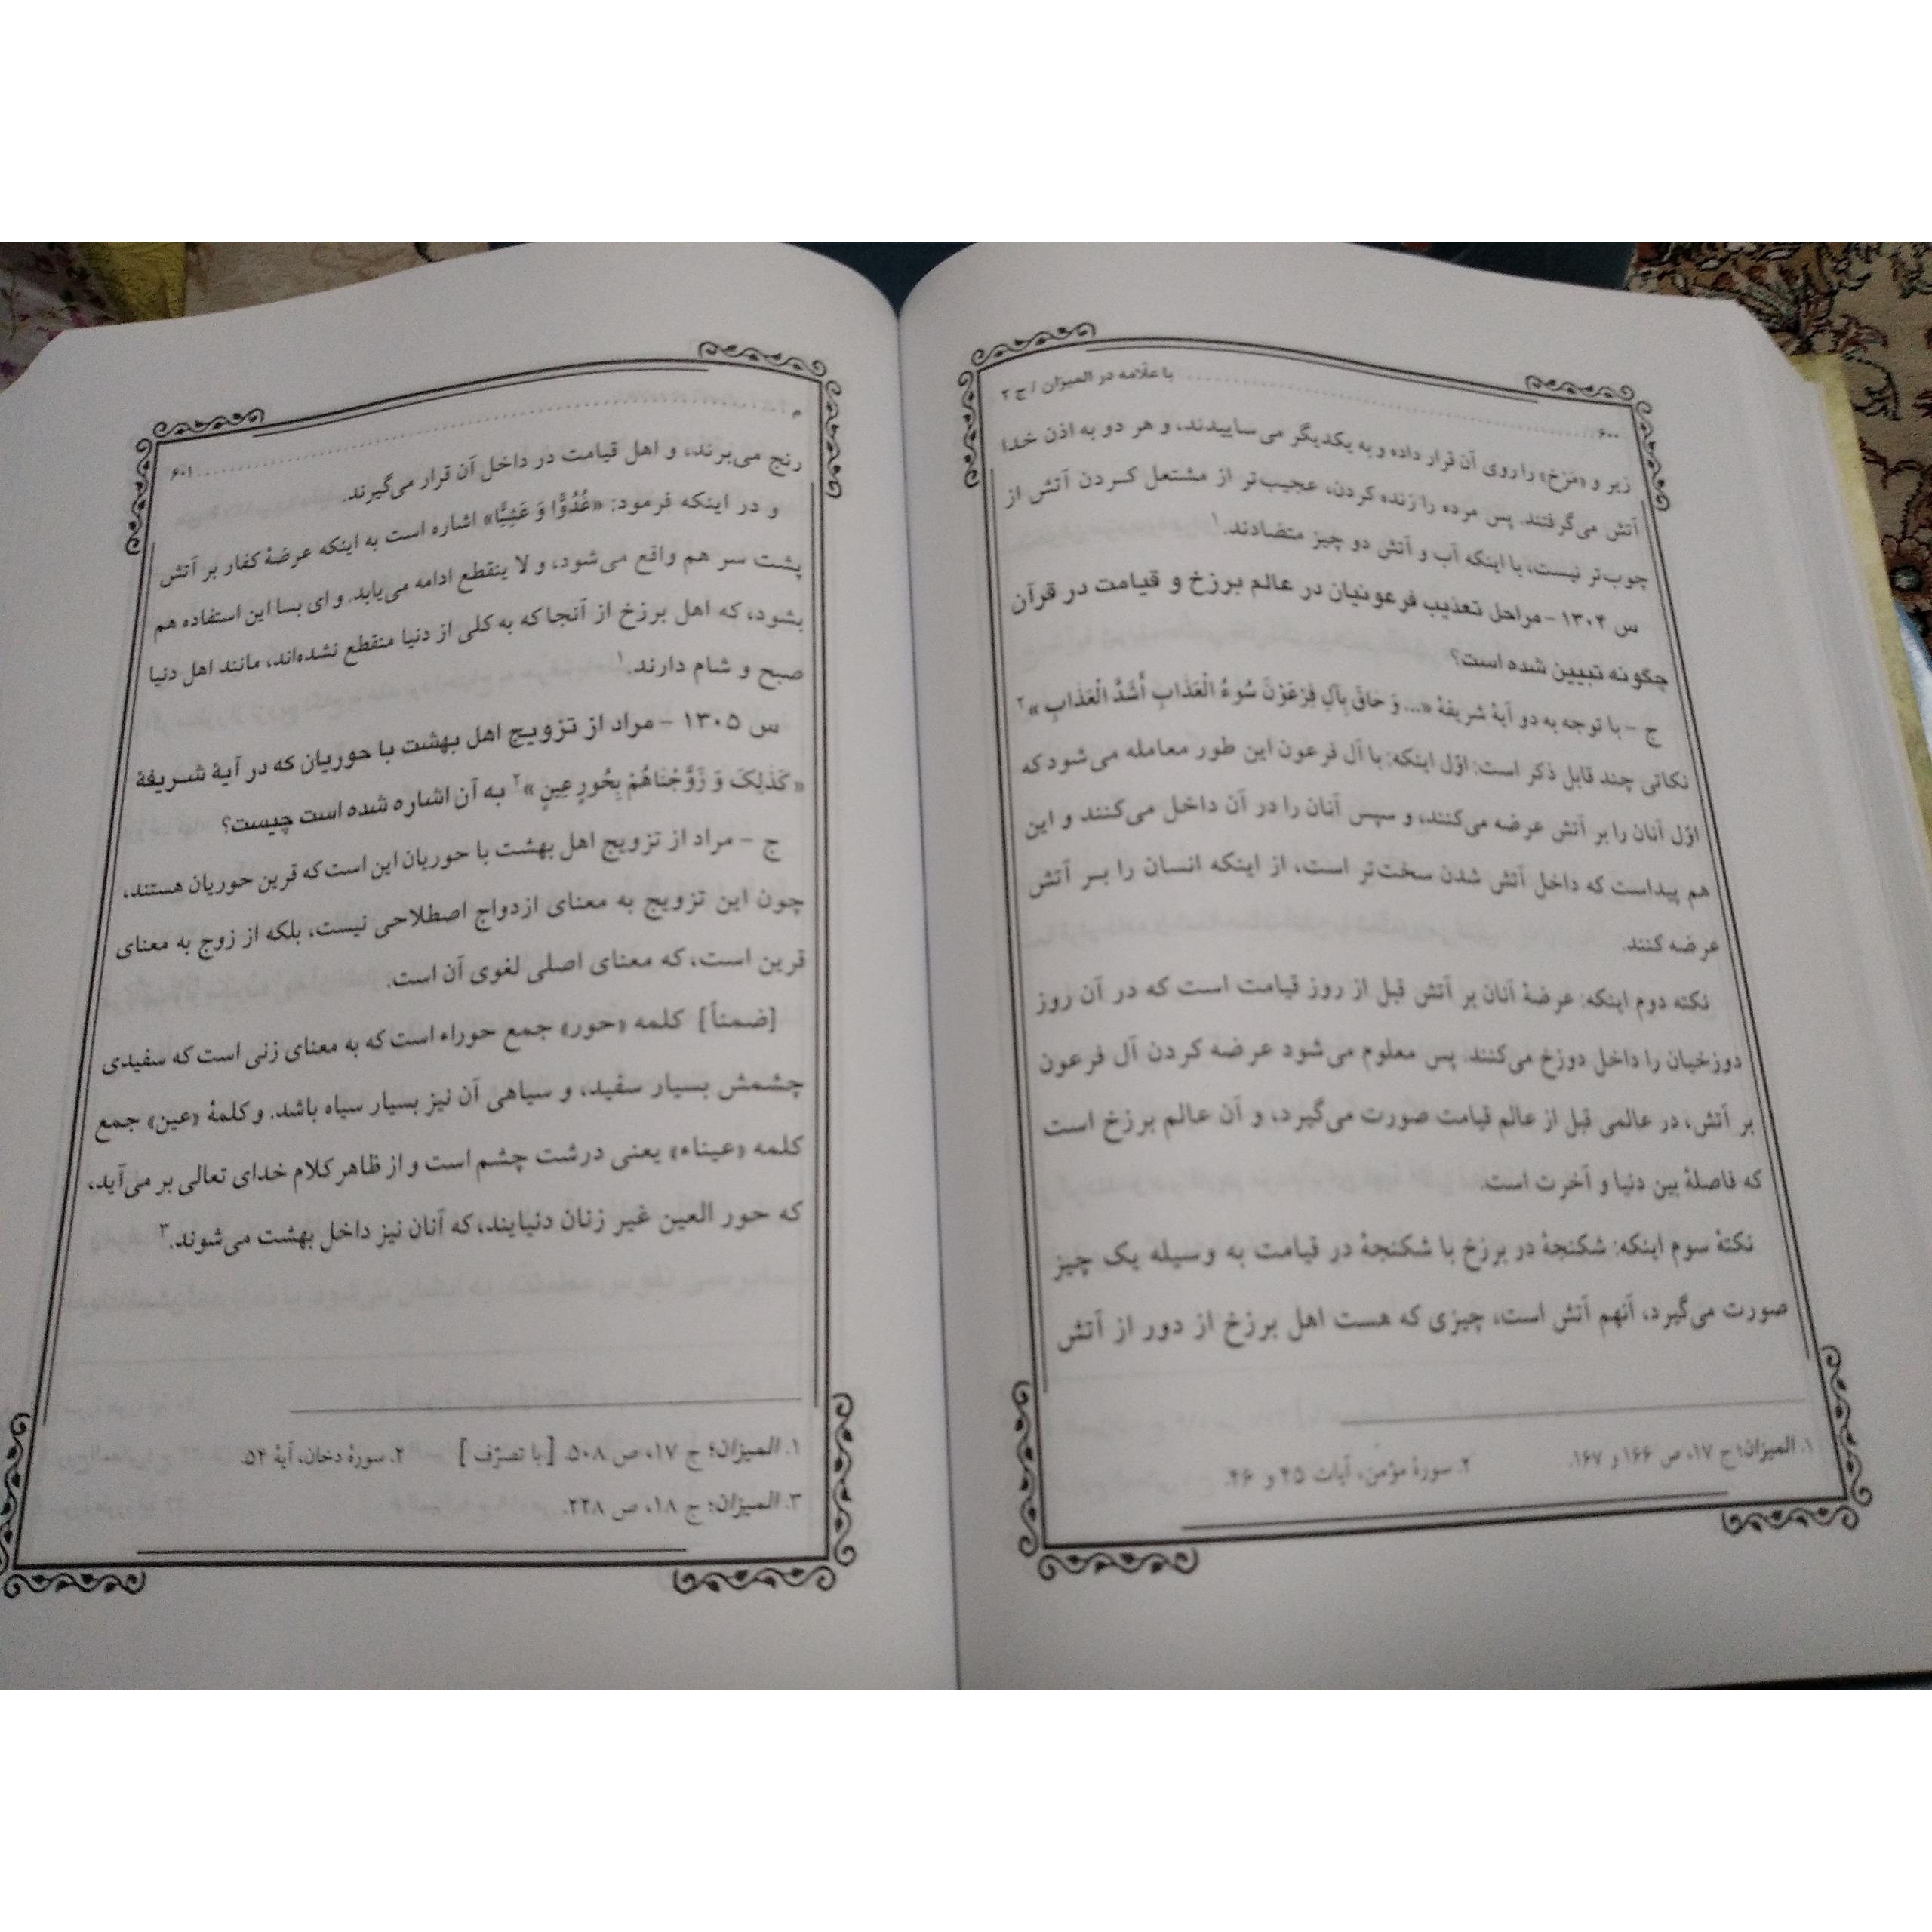 ۶۰۰ با علّامه در المیزان / ج ۲
زیر و «مَرْخ» را روی آن قرار داده و به یکدیگر می‌ساییدند، و هر دو به اذن خدا
آتش می‌گرفتند. پس مرده را زنده کردن، عجیب‌تر از مشتعل کردن آتش از
چوب‌تر نیست، با اینکه آب و آتش دو چیز متضادند.۱
س ۱۳۰۴ - مراحل تعذیب فرعونیان در عالم برزخ و قیامت در قرآن
چگونه تبیین شده است؟
ج - با توجه به دو آیهٔ شریفهٔ «... وَ حَاقَ بِآلِ فِرْعَوْنَ سُوءُ الْعَذَابِ أَشَدَّ الْعَذَابِ»۲
نکاتی چند قابل ذکر است: اوّل اینکه: با آل فرعون این طور معامله می‌شود که
اوّل آنان را بر آتش عرضه می‌کنند، و سپس آنان را در آن داخل می‌کنند و این
هم پیداست که داخل آتش شدن سخت‌تر است، از اینکه انسان را بر آتش
عرضه کنند.
نکته دوم اینکه: عرضهٔ آنان بر آتش قبل از روز قیامت است که در آن روز
دوزخیان را داخل دوزخ می‌کنند. پس معلوم می‌شود عرضه کردن آل فرعون
بر آتش، در عالمی قبل از عالم قیامت صورت می‌گیرد، و آن عالم برزخ است
که فاصلهٔ بین دنیا و آخرت است.
نکتهٔ سوم اینکه: شکنجهٔ در برزخ با شکنجهٔ در قیامت به وسیله یک چیز
صورت می‌گیرد، آنهم آتش است، چیزی که هست اهل برزخ از دور از آتش
۱. المیزان؛ ج ۱۷، ص ۱۶۶ و ۱۶۷. ۲. سورهٔ مؤمن، آیات ۴۵ و ۴۶.
م ۶۰۱
رنج می‌برند، و اهل قیامت در داخل آن قرار می‌گیرند.
و در اینکه فرمود: «غُدُوًّا وَ عَشِیًّا» اشاره است به اینکه عرضهٔ کفار بر آتش
پشت سر هم واقع می‌شود، و لا ینقطع ادامه می‌یابد. و ای بسا این استفاده هم
بشود، که اهل برزخ از آنجا که به کلی از دنیا منقطع نشده‌اند، مانند اهل دنیا
صبح و شام دارند.۱
س ۱۳۰۵ - مراد از تزویج اهل بهشت با حوریان که در آیهٔ شریفهٔ
«کَذَلِکَ وَ زَوَّجْنَاهُمْ بِحُورٍ عِینٍ»۲ به آن اشاره شده است چیست؟
ج - مراد از تزویج اهل بهشت با حوریان این است که قرین حوریان هستند،
چون این تزویج به معنای ازدواج اصطلاحی نیست، بلکه از زوج به معنای
قرین است، که معنای اصلی لغوی آن است.
[ضمناً] کلمه «حور» جمع حوراء است که به معنای زنی است که سفیدی
چشمش بسیار سفید، و سیاهی آن نیز بسیار سیاه باشد. و کلمهٔ «عین» جمع
کلمه «عیناء» یعنی درشت چشم است و از ظاهر کلام خدای تعالی بر می‌آید،
که حور العین غیر زنان دنیایند، که آنان نیز داخل بهشت می‌شوند.۳
۱. المیزان؛ ج ۱۷، ص ۵۰۸. [با تصرّف] ۲. سورهٔ دخان، آیهٔ ۵۴.
۳. المیزان؛ ج ۱۸، ص ۲۲۸.